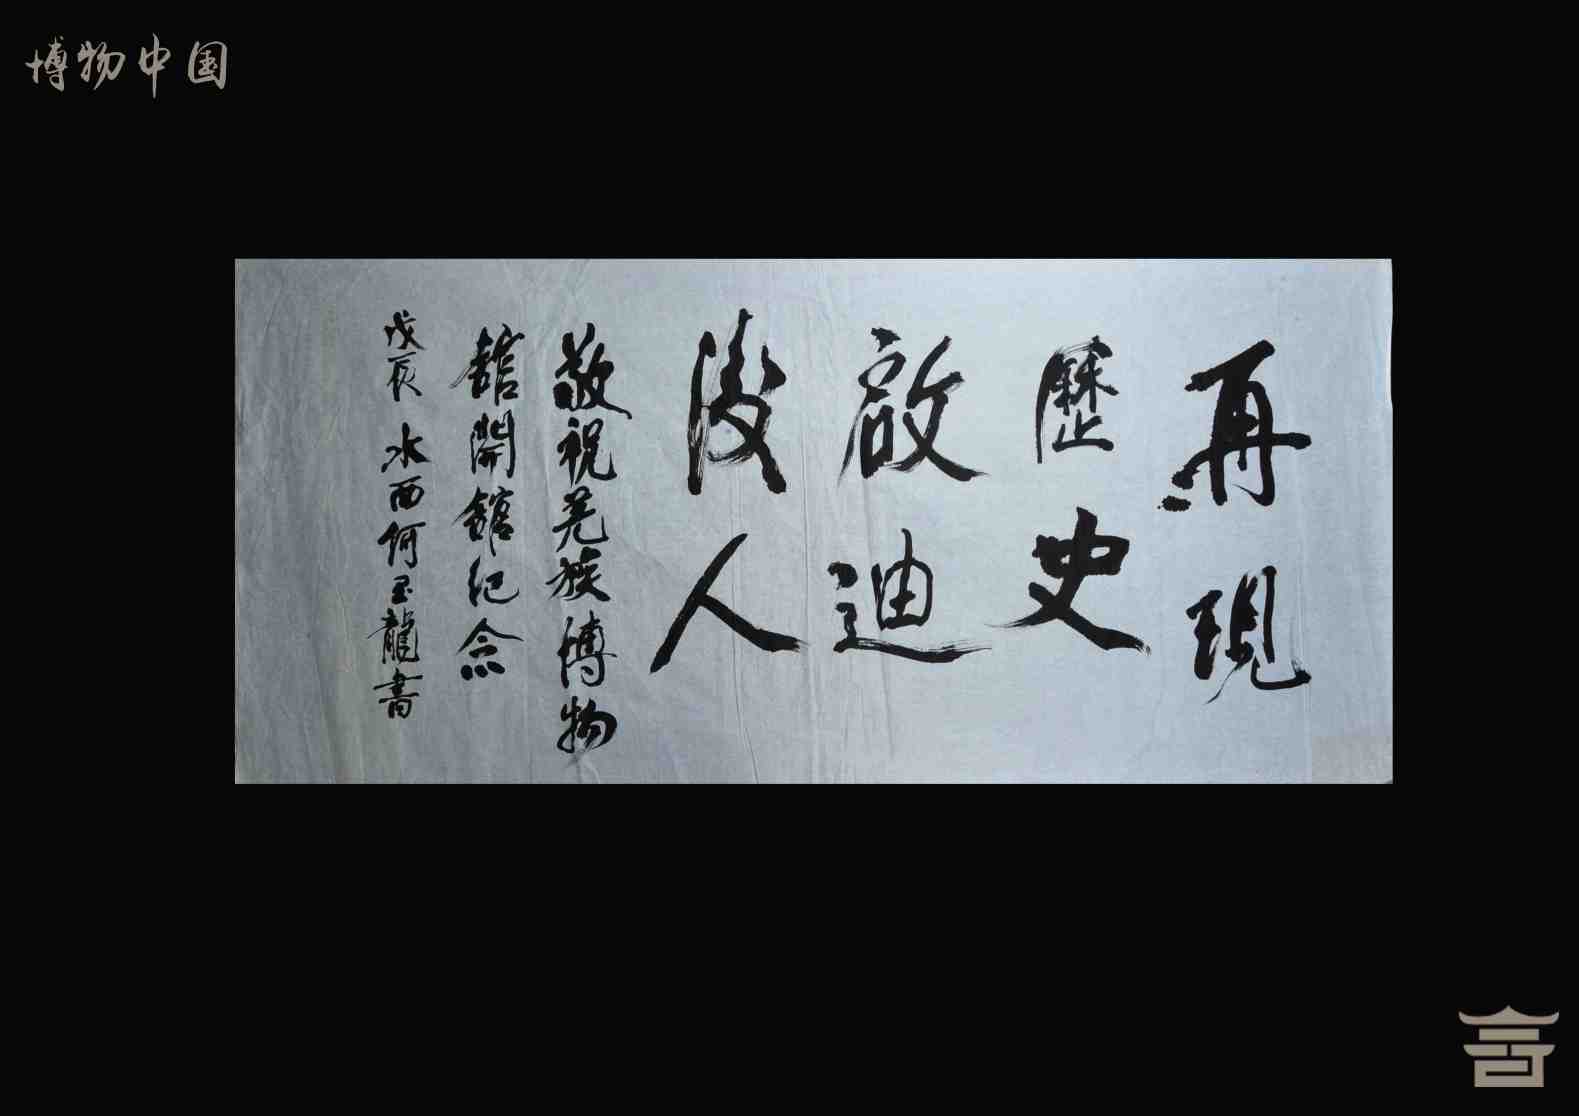 博物中国
再現
歷史
啟迪
後人
敬祝羌族博物
館開館紀念
戊辰 水西何玉龍書